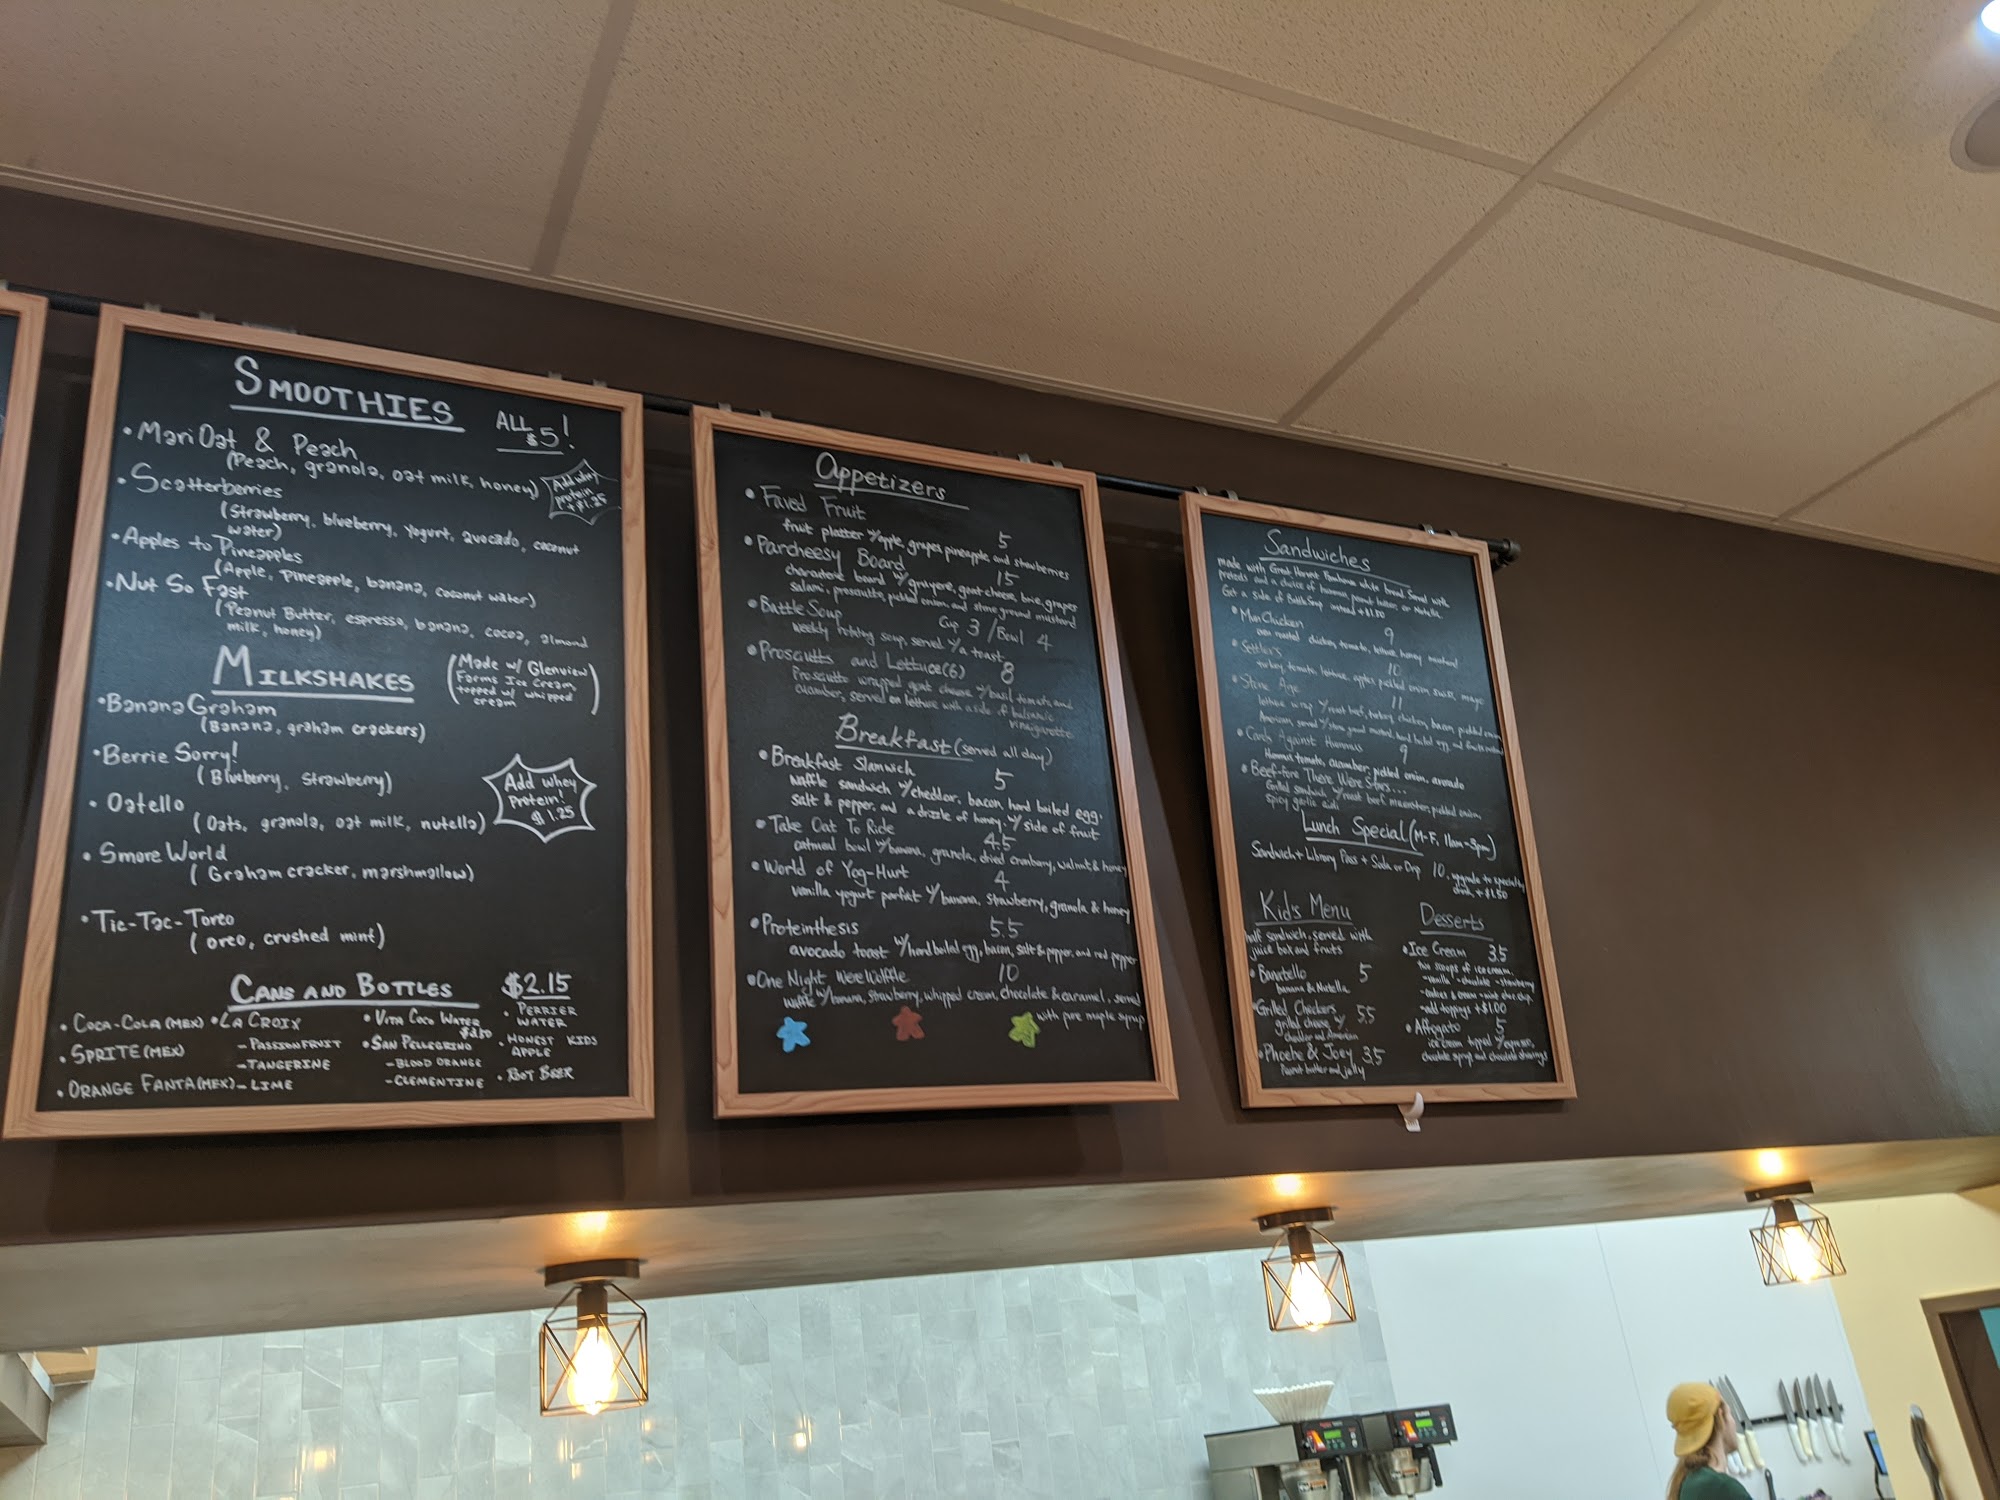 SMOOTHIES
ALL $5!
• MariOat & Peach
(Peach, granola, oat milk, honey)
Add whey protein +$1.25
• Scatterberries
(Strawberry, blueberry, yogurt, avocado, coconut
water)
• Apples to Pineapples
(Apple, pineapple, banana, coconut water)
• Nut So Fast
(Peanut Butter, espresso, banana, cocoa, almond
milk, honey)
MILKSHAKES
(Made w/ Glenview
Farms Ice Cream
topped w/ whipped
cream)
• Banana Graham
(Banana, graham crackers)
• Berrie Sorry!
(Blueberry, Strawberry)
Add whey
protein!
$1.25
• Oatello
(Oats, granola, oat milk, nutella)
• Smore World
(Graham cracker, marshmallow)
• Tic-Tac-Toreo
(oreo, crushed mint)
CANS AND BOTTLES $2.15
• COCA-COLA (MEX)
• SPRITE (MEX)
• ORANGE FANTA (MEX)
• LA CROIX
- PASSIONFRUIT
- TANGERINE
- LIME
• VITA COCO WATER
• SAN PELLEGRINO
- BLOOD ORANGE
- CLEMENTINE
• PERRIER
WATER
• HONEST KIDS
APPLE
• ROOT BEER
Appetizers
• Faved Fruit 5
fruit platter w/apple, grapes, pineapple, and strawberries
• Parcheesy Board 15
charcuterie board w/ gruyere, goat cheese, brie, grapes
salami, prosciutto, pickled onion, and stone ground mustard
• Battle Soup Cup 3 / Bowl 4
weekly rotating soup, served w/a toast
• Prosciutts and Lettuce(6) 8
Prosciutto wrapped goat cheese w/basil, tomato, and
cucumber, served on lettuce with a side of balsamic
vinaigrette
Breakfast (served all day)
• Breakfast Slamwich 5
waffle sandwich w/cheddar, bacon, hard boiled egg,
salt & pepper, and a drizzle of honey. w/ side of fruit
• Take Oat To Ride 4.5
oatmeal bowl w/banana, granola, dried cranberry, walnut & honey
• World of Yog-Hurt 4
vanilla yogurt parfait w/banana, strawberry, granola & honey
• Proteinthesis 5.5
avocado toast w/hard boiled egg, bacon, salt & pepper, and red pepper
• One Night WereWaffle 10
waffle w/banana, strawberry, whipped cream, chocolate & caramel, served
with pure maple syrup
Sandwiches
made with Great Harvest Farmhouse white bread. Served with
pretzels and a choice of hummus, peanut butter, or Nutella.
Get a side of Battle Soup instead +$1.50
• MunChicken 9
oven roasted chicken, tomato, lettuce, honey mustard
• Settlers 10
turkey, tomato, lettuce, apple, pickled onion, swiss, mayo
• Stone Age 11
lettuce wrap w/roast beef, turkey, chicken, bacon, pickled onion
American, served w/stone ground mustard, hard boiled egg, and
• Cards Against Hummus 9
Hummus, tomato, cucumber, pickled onion, avocado
• Beef-fore There Were Stars...
Grilled sandwich w/roast beef, pickled onion,
spicy garlic aioli
Lunch Special (M-F, 11am-3pm)
Sandwich + Library Pass + Soda or Drip 10, upgrade to specialty
drink, +$1.50
Kids Menu
half sandwich, served with
juice box and fruits
• Banatello 5
banana & Nutella
• Grilled Checkers 5.5
grilled cheese w/
cheddar and American
• Phoebe & Joey 3.5
Peanut butter and jelly
Desserts
• Ice Cream 3.5
two scoops of ice cream.
- vanilla - chocolate - strawberry
- cookies & cream - mint choc chip
- add toppings +$1.00
• Affogato 5
ice cream topped w/espresso,
chocolate syrup and chocolate shavings